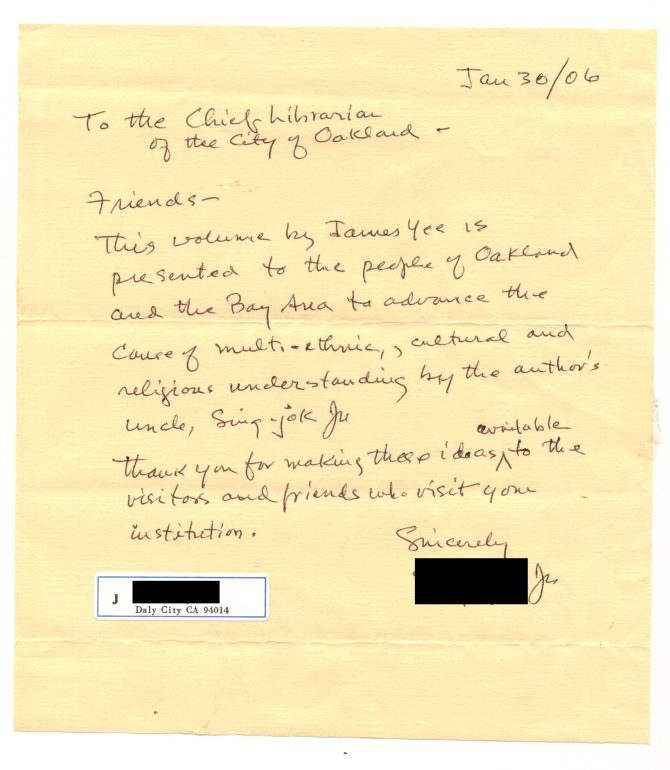 Jan 30/06
To the Chief Librarian
of the City of Oakland -
Friends-
This volume by James Yee is
presented to the people of Oakland
and the Bay Area to advance the
cause of multi-ethnic, cultural and
religious understanding by the author's
uncle, Sing-jok Ju
available
Thank you for making these ideas ^ to the
visitors and friends who visit your
institution.
Sincerely
Ju
J
Daly City CA 94014